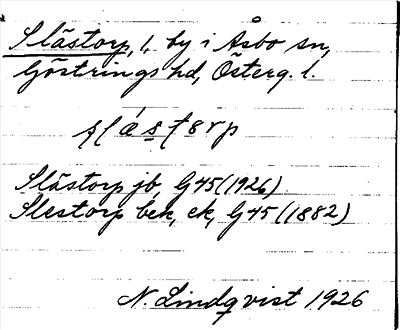 Slästorp, l, by i Åsbo sn,
Göstrings hd, Österg. l.
slæstorp
Slästorp jb, G45 (1926)
Slestorp bek, ek, G45 (1882)
N. Lindqvist 1926